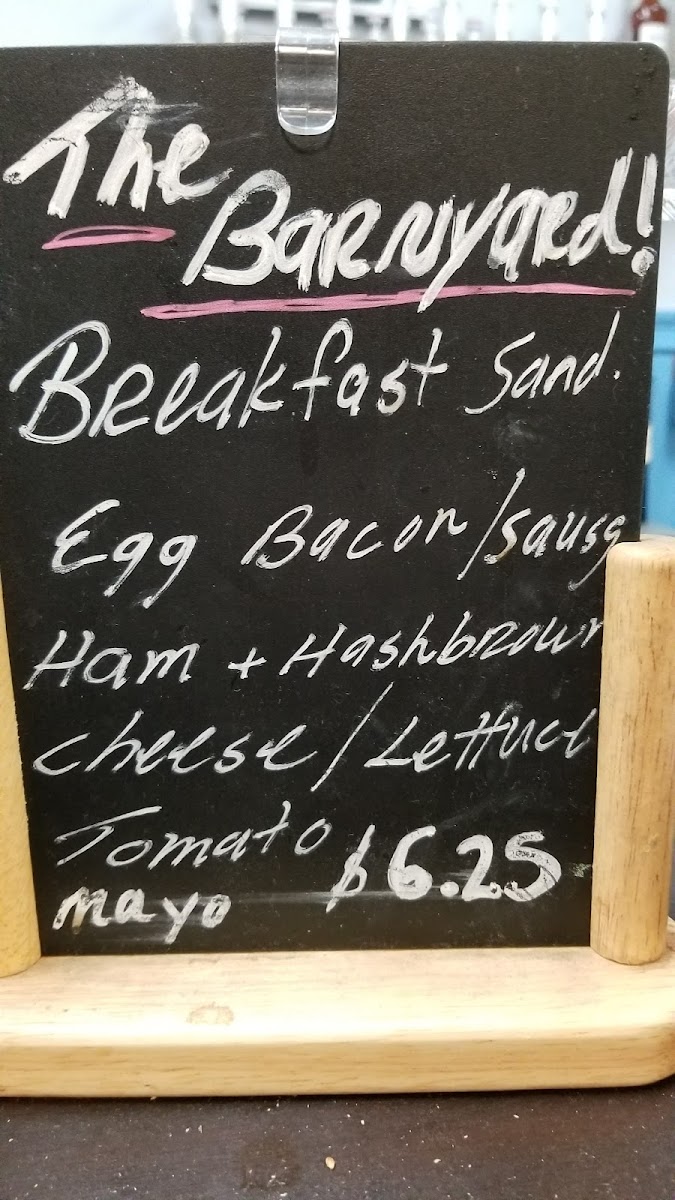 The
Barnyard!
Breakfast Sand.
Egg Bacon/sausg
Ham + Hashbrown
cheese/Lettuce
Tomato
mayo $6.25